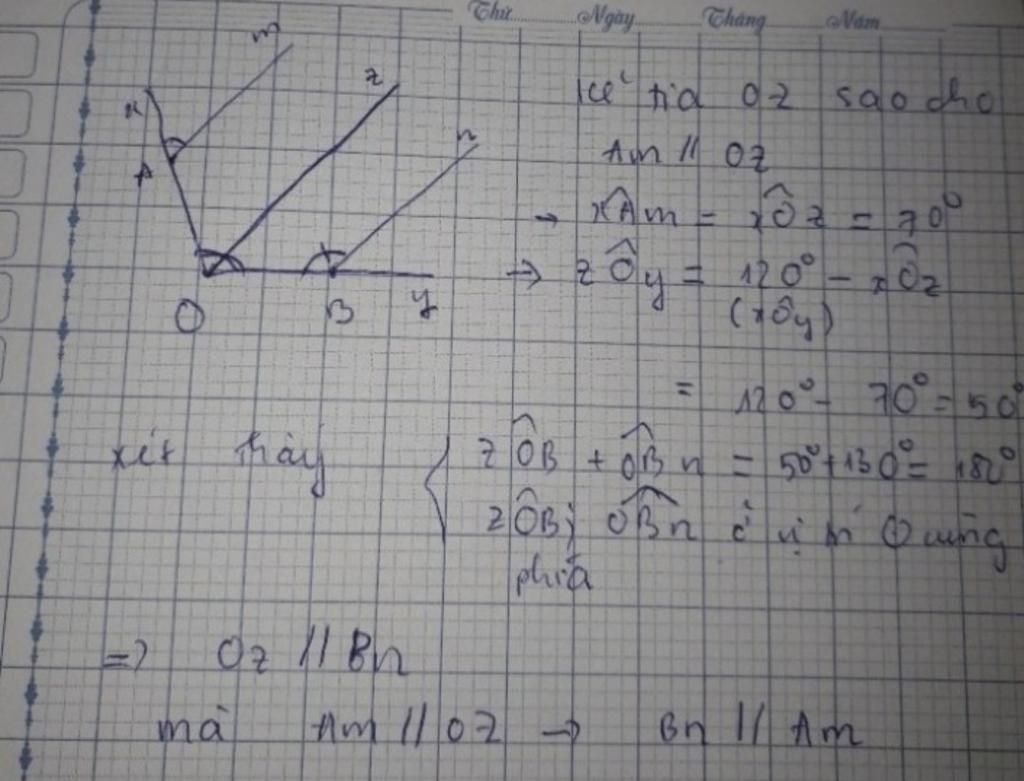 Thứ Ngày Tháng Năm
m
x
z
n
A
O
B
y
Kẻ tia Oz sao cho
Am // Oz
→ xÂm = xÔz = 70°
→ zÔy = 120° - xÔz
(xÔy)
= 120° - 70° = 50°
xét thấy { zÔB + OB̂n = 50° + 130° = 180°
zÔB; OB̂n ở vị trí cùng
phía
=> Oz // Bn
mà Am // Oz → Bn // Am